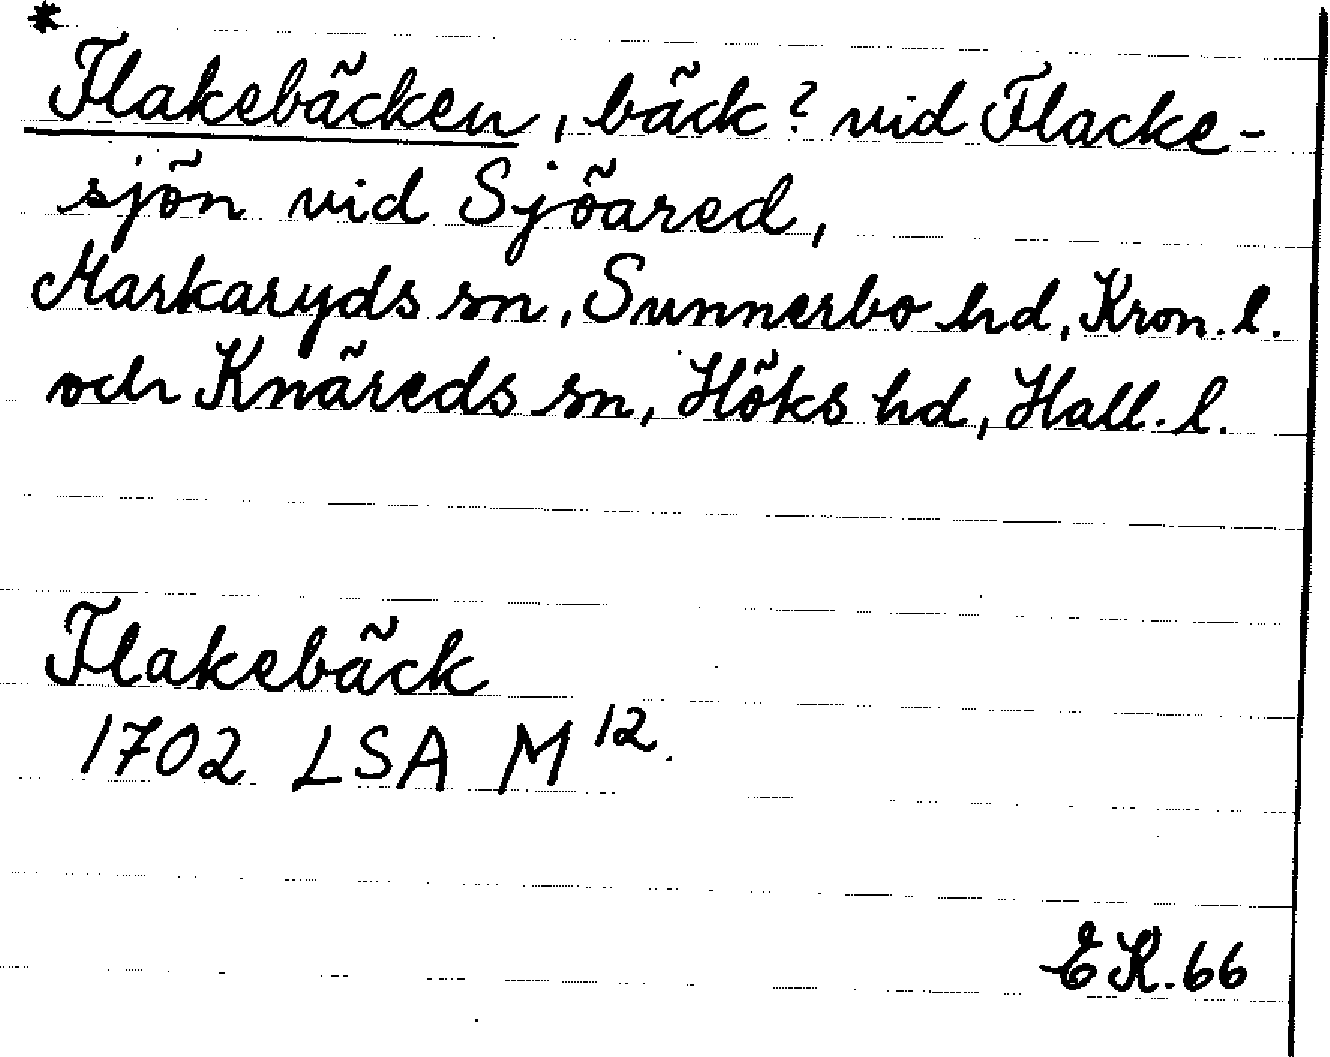 *
Flakebäcken, bäck? vid Flacke-
sjön vid Sjöared,
Markaryds sn, Sunnerbo hd, Kron. l.
och Knäreds sn, Höks hd, Hall. l.
Flakebäck
1702 LSA M 12.
EK. 66